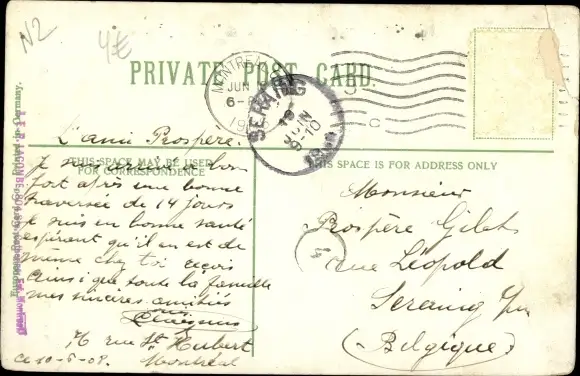 N2
4€
PRIVATE POST CARD.
MONTREAL
JUN
6-
SERAING
JUIN
9-10
L'ami Prospère.
THIS SPACE MAY BE USED
FOR CORRESPONDENCE
THIS SPACE IS FOR ADDRESS ONLY
Je suis bon
port après une bonne
traversée de 14 jours
je suis en bonne santé
espérant qu'il en est de
même chez toi reçois
ainsi que toute la famille
mes sincères amitiés
76 rue St Hubert
Ce 10-6-08. Montréal
Monsieur
Prospère
rue Léopold
Seraing
(Belgique)
Printed in Germany.